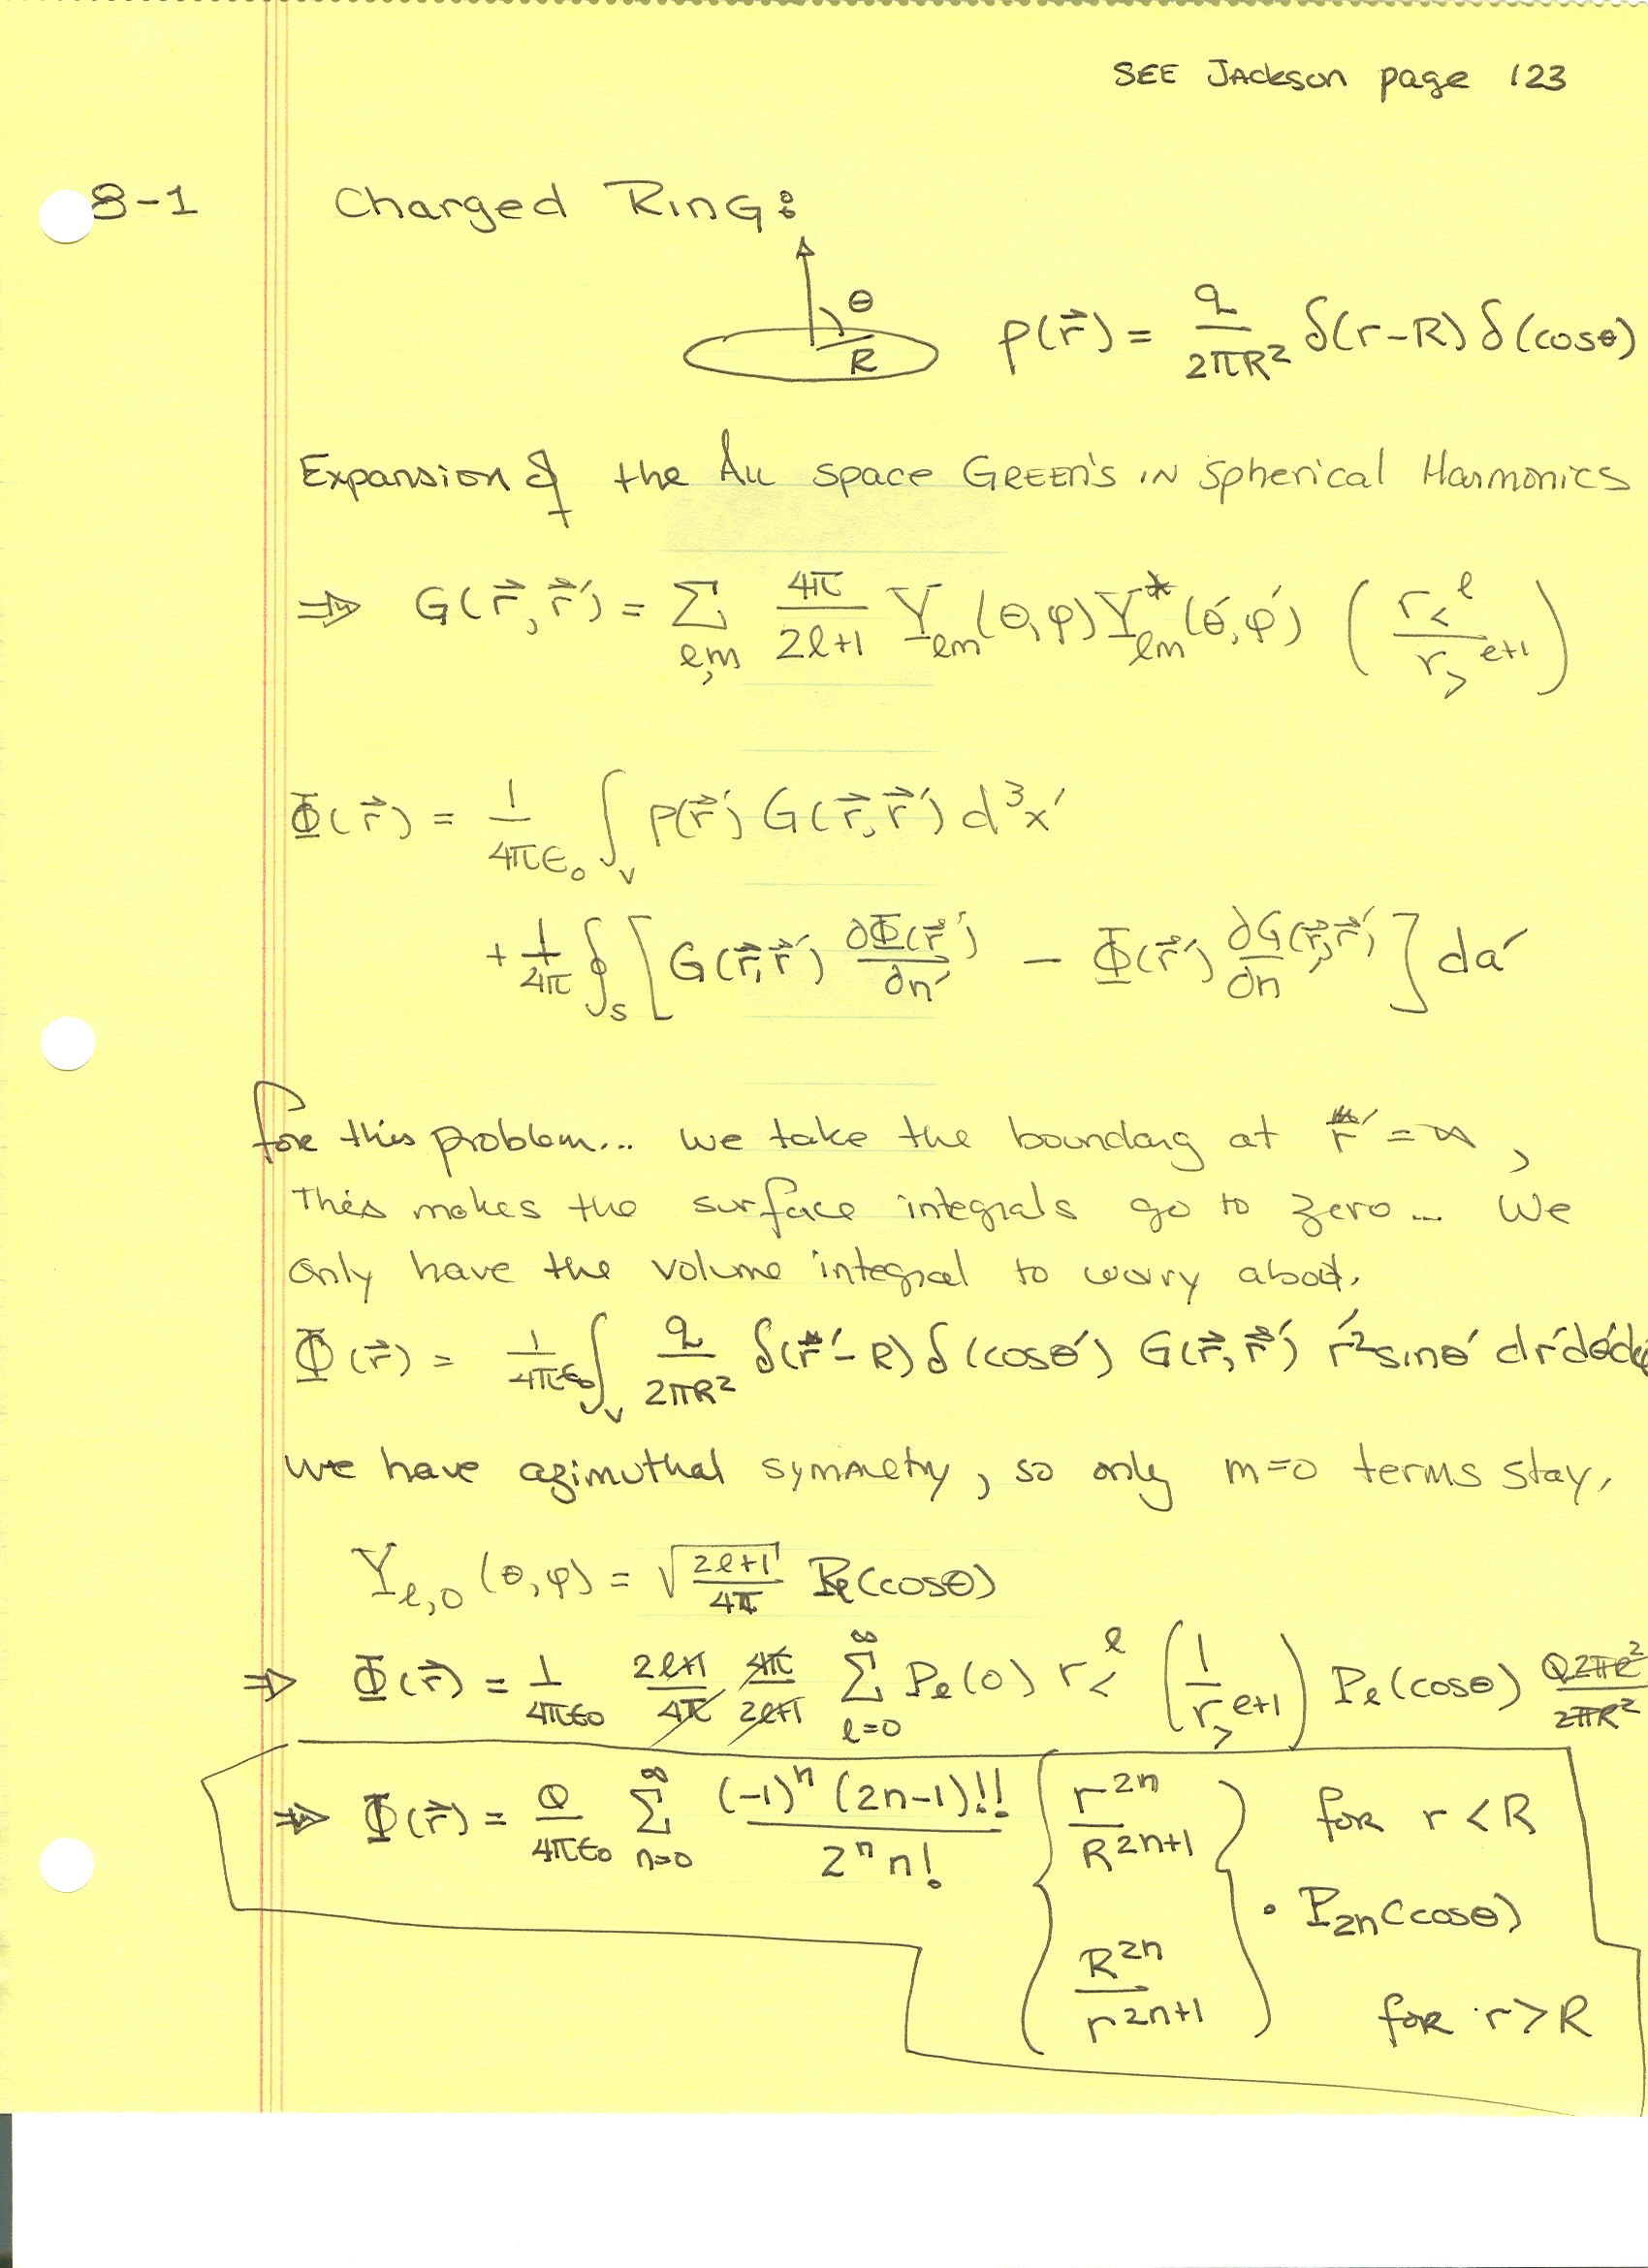 SEE Jackson page 123
8-1 Charged Ring:
θ
R
ρ(r⃗) = q/(2πR²) δ(r-R) δ(cosθ)
Expansion of the All space GREEN'S IN Spherical Harmonics
⇒ G(r⃗,r⃗') = Σ_{l,m} 4π/(2l+1) Y_{lm}(θ,φ) Y*_{lm}(θ',φ') (r_<^l / r_>^{l+1})
Φ(r⃗) = 1/(4πε₀) ∫_V ρ(r⃗') G(r⃗,r⃗') d³x'
+ 1/(4π) ∮_S [G(r⃗,r⃗') ∂Φ(r⃗')/∂n' − Φ(r⃗') ∂G(r⃗,r⃗')/∂n] da'
for this problem... we take the boundary at r' = ∞,
This makes the surface integrals go to zero... We
only have the volume integral to worry about.
Φ(r⃗) = 1/(4πε₀) ∫_V q/(2πR²) δ(r'-R) δ(cosθ') G(r⃗,r⃗') r'² sinθ' dr'dθ'dφ
we have azimuthal symmetry, so only m=0 terms stay.
Y_{l,0}(θ,φ) = √((2l+1)/(4π)) P_l(cosθ)
⇒ Φ(r⃗) = 1/(4πε₀) (2l+1)/(4π) 4π/(2l+1) Σ_{l=0}^∞ P_l(0) r_<^l (1/r_>^{l+1}) P_l(cosθ) Q2πR²/(2πR²)
⇒ Φ(r⃗) = Q/(4πε₀) Σ_{n=0}^∞ (-1)^n (2n-1)!!/(2^n n!) { r^{2n}/R^{2n+1} for r < R
· P_{2n}(cosθ)
R^{2n}/r^{2n+1} } for r > R